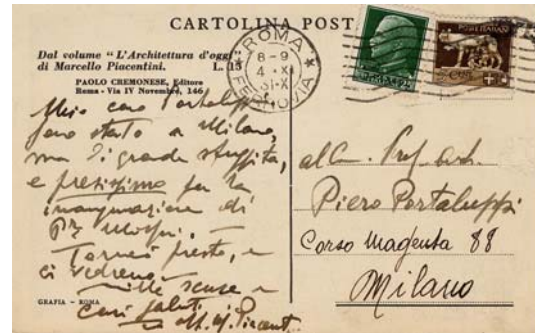 CARTOLINA POST
Dal volume "L'Architettura d'oggi"
di Marcello Piacentini. L. 15
PAOLO CREMONESE, Editore
Roma - Via IV Novembre, 146
ROMA
8-9
4 XI
31-X
FERROVIA
POSTE ITALIANE
Mio caro Portaluppi
sono stato a Milano,
ma di grande sfuggita,
e presissimo per la
inaugurazione di
Tornerò presto, e
ci vedremo
mille scuse e
cari saluti
aff. M. Piacent..
GRAFIA - ROMA
al C.. Prof. arch.
Piero Portaluppi
Corso Magenta 88
Milano